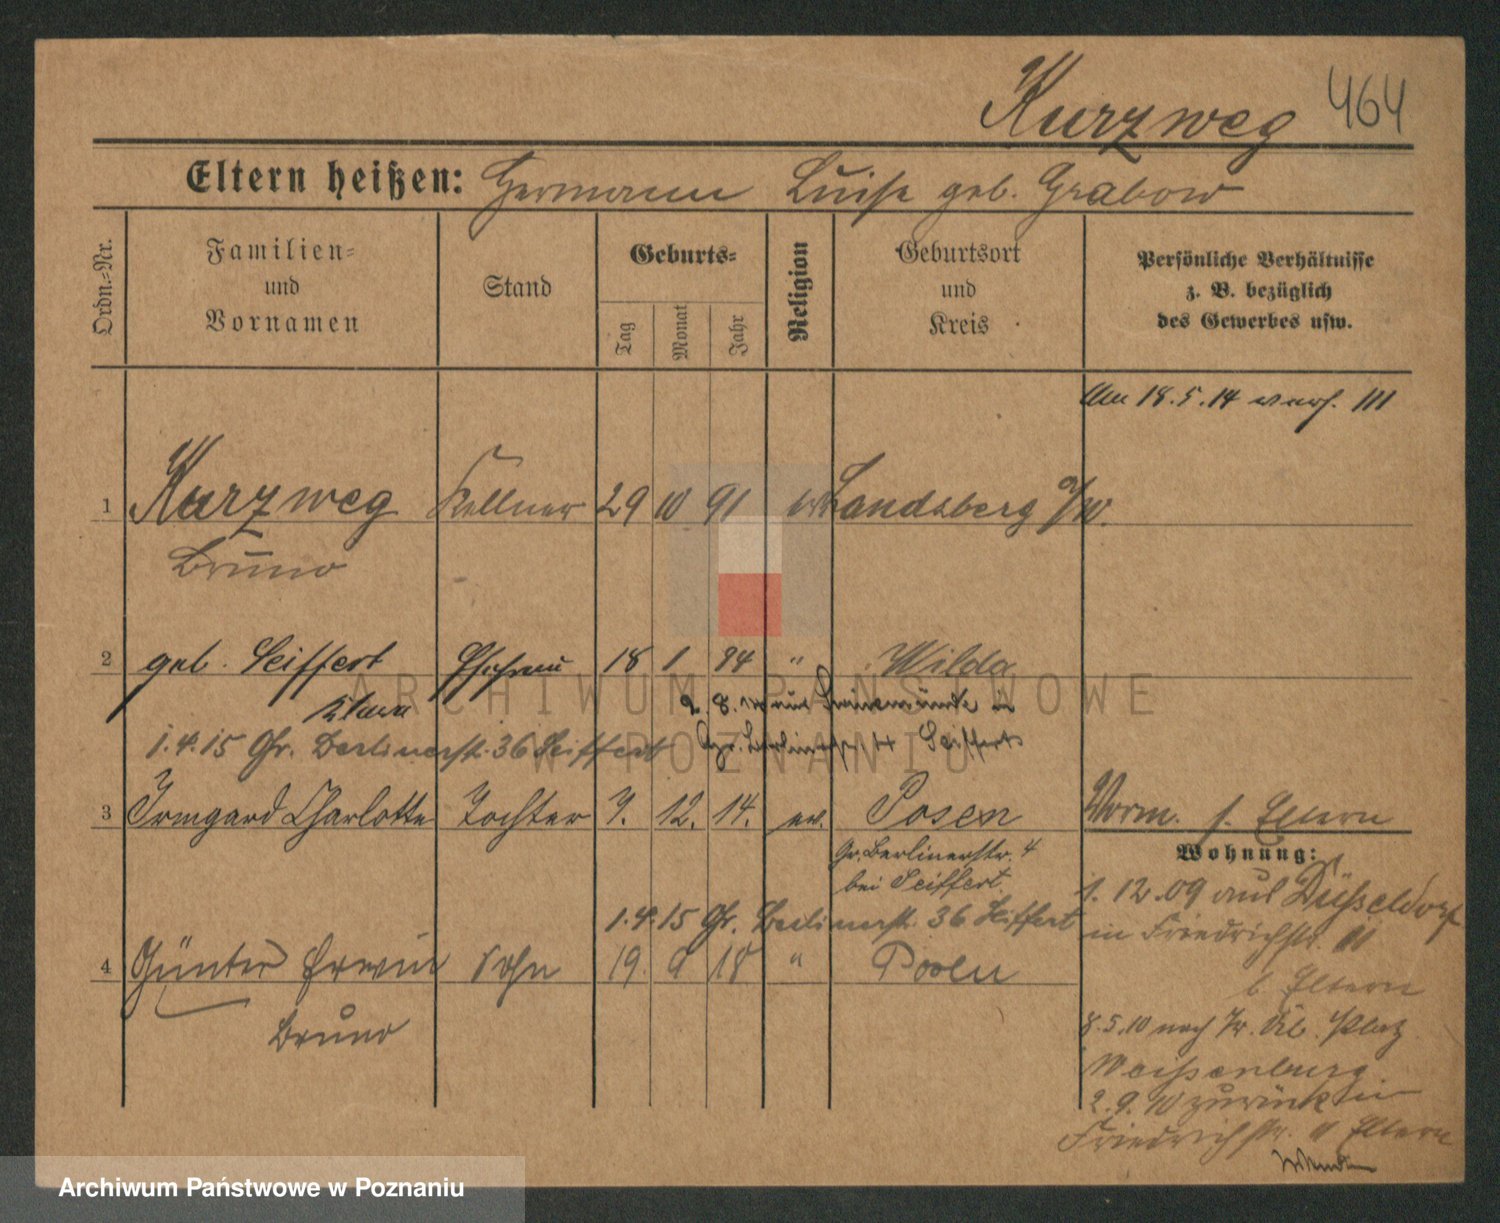 Kurzweg 464
Eltern heißen: Hermann Luise geb. Grabow
Ordn.=Nr.
Familien=
und
Vornamen
Stand
Geburts=
Tag
Monat
Jahr
Religion
Geburtsort
und
Kreis
Persönliche Verhältnisse
z. B. bezüglich
des Gewerbes usw.
18.5.14 III
1 Kurzweg Kellner 29 10 91 ev Landsberg a/W.
Bruno
2 geb. Seiffert Ehefrau 18 1 94 " Wilda
Klara
2. 8. aus Swinemünde in
Gr. Berlinerstr Seiffert
1.4.15 Gr. Berlinerstr. 36 Seiffert
3 Irmgard Charlotte Tochter 7. 12. 14. ev. Posen
Gr. Berlinerstr. 4
bei Seiffert.
1.4.15 Gr. Berlinerstr. 36 Seiffert
4 Günter Erwin Sohn 19. 9 18 " Posen
Bruno
Vorm. s. Eltern
Wohnung:
1. 12.09 aus Düsseldorf
in Friedrichstr.
b. Eltern
8.5.10 nach Platz
Weissenburg
2.9.10 zurück in
Friedrichstr. Eltern
ARCHIWUM PAŃSTWOWE
W POZNANIU
Archiwum Państwowe w Poznaniu